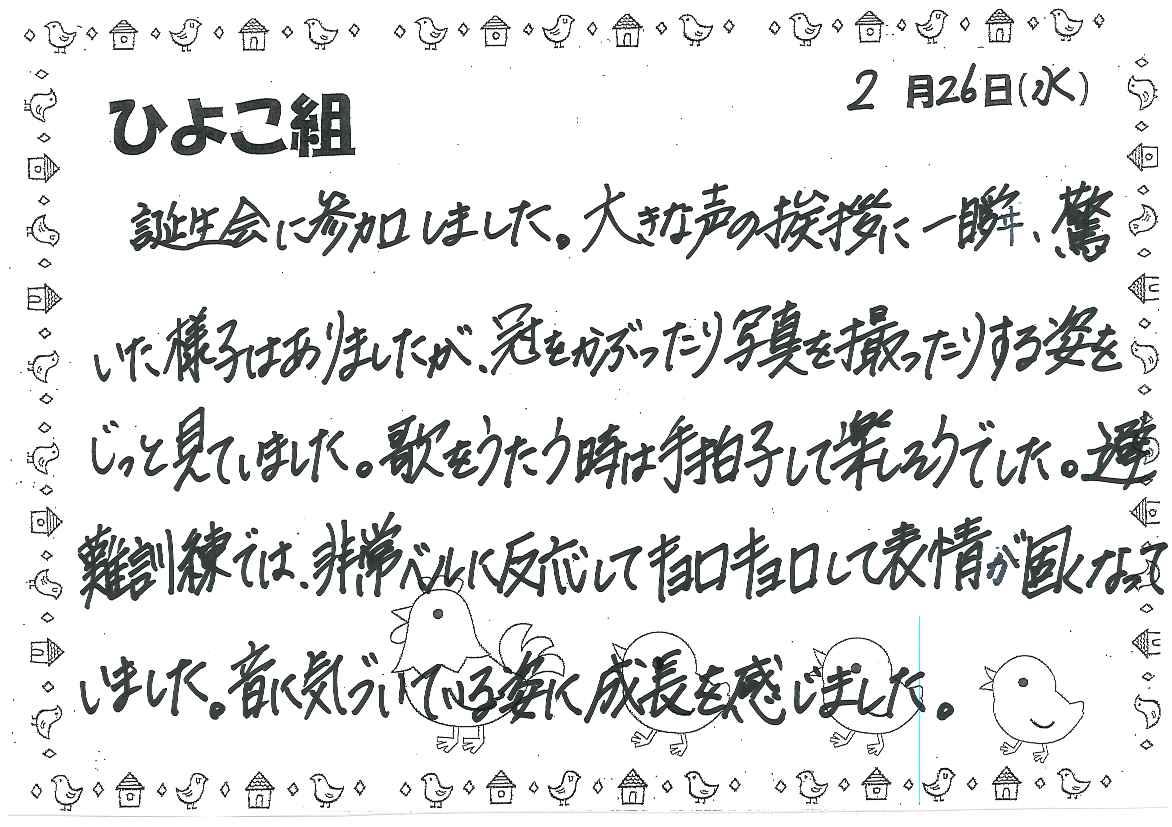 2月26日(水)
ひよこ組
誕生会に参加しました。大きな声の挨拶に一瞬、驚
いた様子はありましたが、冠をかぶったり写真を撮ったりする姿を
じっと見ていました。歌をうたう時は手拍子して楽しそうでした。避
難訓練では、非常ベルに反応してキョロキョロして表情が固くなって
いました。音に気づいている姿に成長を感じました。